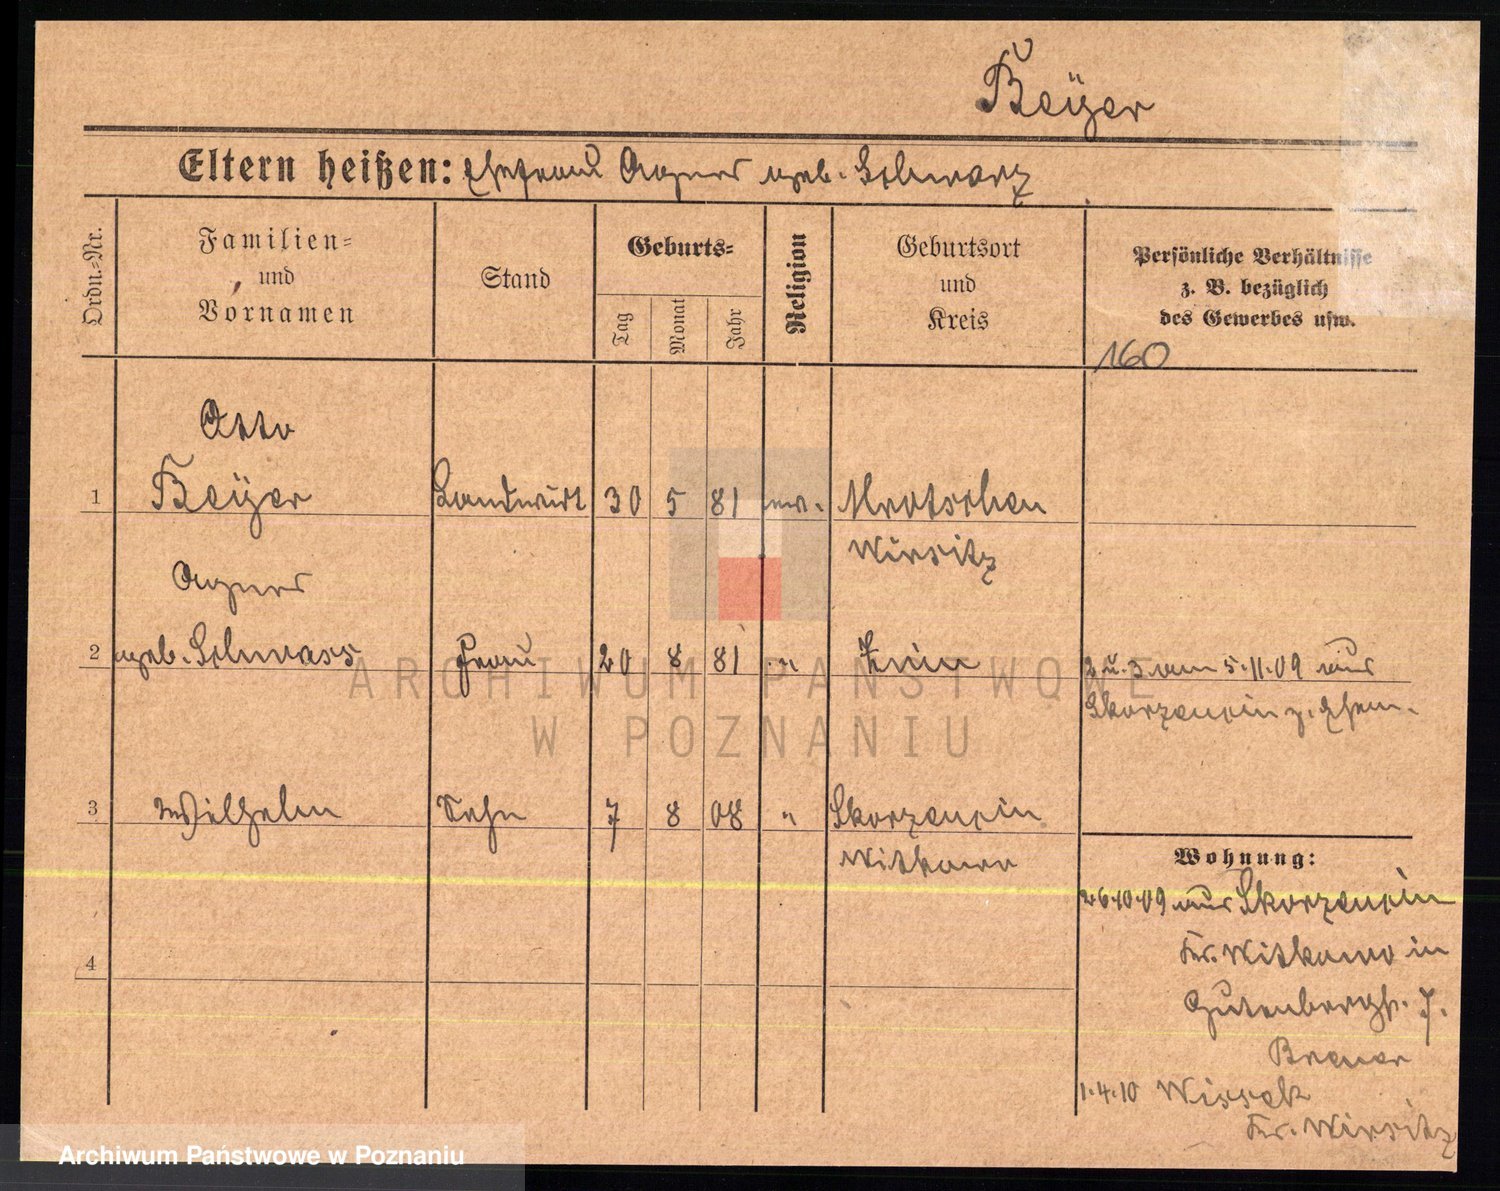 Beÿer
Eltern heißen: Ehefrau Agnes geb. Schwarz
Ordn.=Nr.
Familien=
und
Vornamen
Stand
Geburts=
Tag
Monat
Jahr
Religion
Geburtsort
und
Kreis
Persönliche Verhältnisse
z. B. bezüglich
des Gewerbes usw.
160
Otto
1 Beÿer Landwirt 30 5 81 ev. Mrotschen
Wirsitz
Agnes
2 geb. Schwarz Frau 20 8 81 " Znin 2 u. 3 am 5.11.09 aus
Skorzencin z. Ehem.
3 Wilhelm Sohn 7 8 08 " Skorzencin
Witkowo
Wohnung:
26.10.09 aus Skorzencin
Kr. Witkowo in
Gutenbergst. 7.
Brener
1.4.10 Wissek
Kr. Wirsitz
4
ARCHIWUM PAŃSTWOWE
W POZNANIU
Archiwum Państwowe w Poznaniu